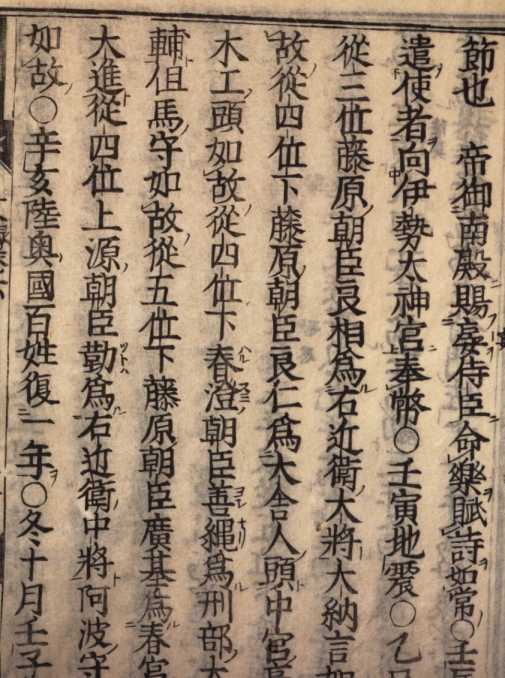 節也　帝御南殿賜宴侍臣命樂賦詩如常〇壬辰
遣使者向伊勢太神宮奉幣〇壬寅地震〇乙
從三位藤原朝臣良相爲右近衛大將大納言如
故從四位下藤原朝臣良仁爲大舎人頭中宮
木工頭如故從四位下春澄朝臣善繩爲刑部大
輔但馬守如故從五位下藤原朝臣廣基爲春宮
大進從四位上源朝臣勤爲右近衛中將阿波守
如故〇辛亥陸奥國百姓復一年〇冬十月壬子